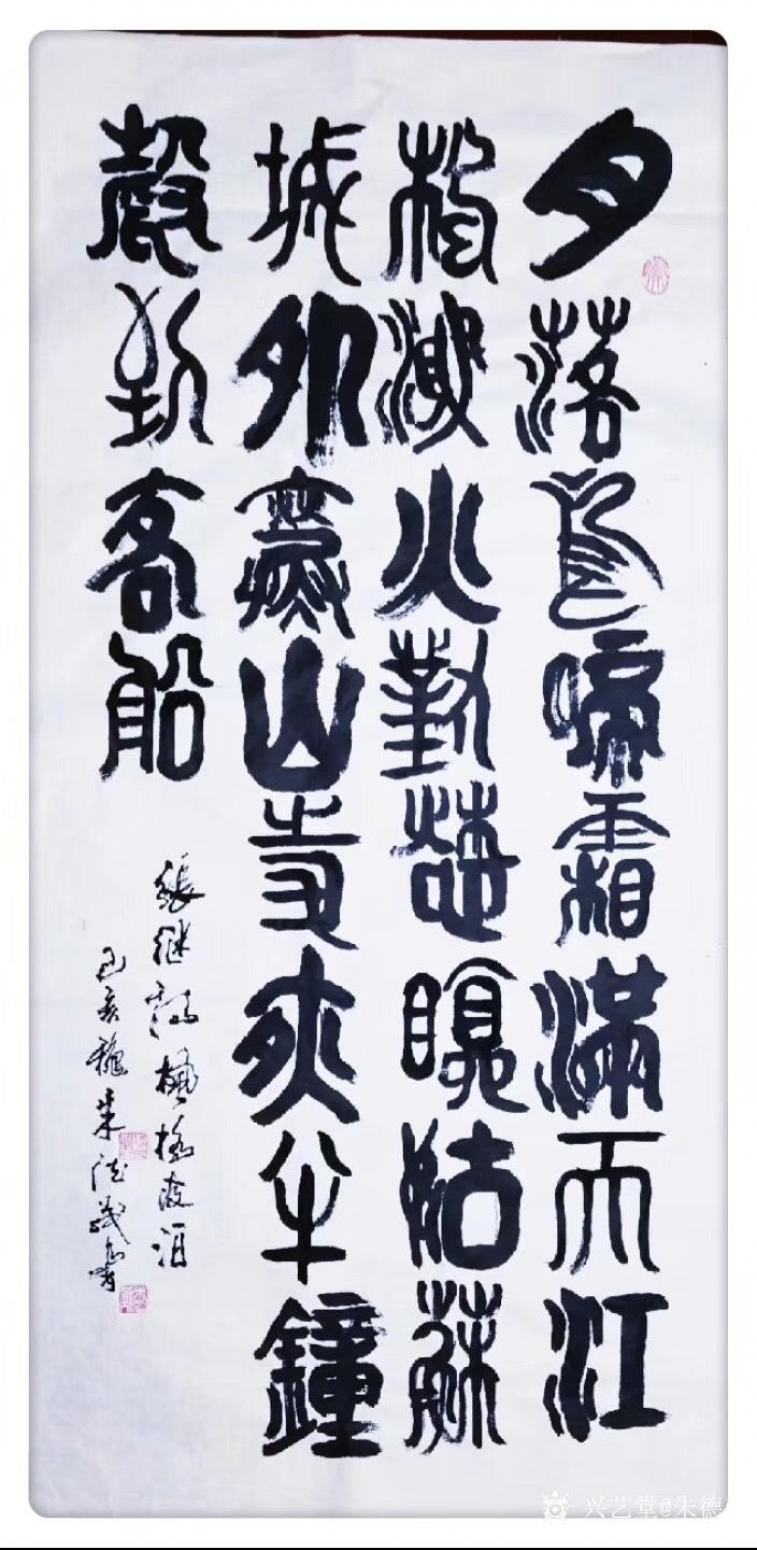 月落烏啼霜滿天江
楓漁火對愁眠姑蘇
城外寒山寺夜半鐘
聲到客船
張継詩楓橋夜泊
己亥龝朱德茂書
兴艺堂@朱德